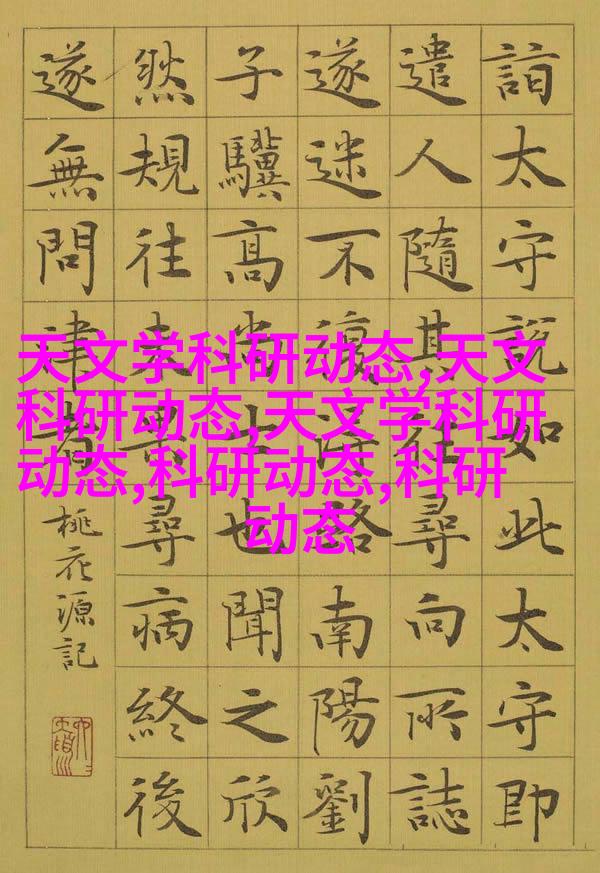 詣太守說如此太守即
遣人隨其往尋向所誌
遂迷不復得路南陽劉
子驥高尚士也聞之欣
然規往未果尋病終後
遂無問津者
桃花源記
天文学科研动态,天文
科研动态,天文学科研
动态,科研动态,科研
动态